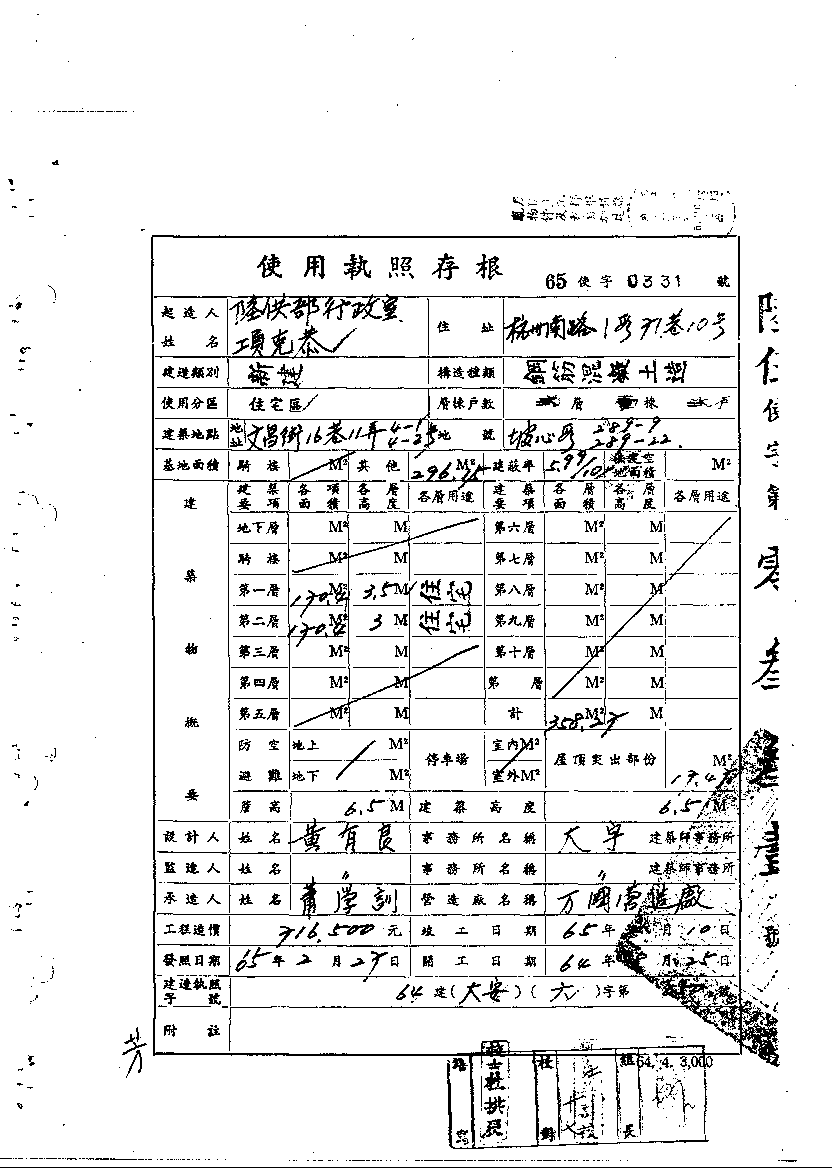 使用執照存根
65 使字 0331 號
起造人姓名 陸供部行政室 項克恭
住址 杭州南路1段71巷10号
建造類別 新建 構造種類 鋼筋混凝土造
使用分區 住宅區 層棟戶數 層 棟 戶
建築地點 地址 文昌街16巷11弄 地號 坡心段 289-9 289-22
基地面積 騎樓 M² 其他 296.75 M² 建蔽率 法定空地面積 M²
建築物概要
建築要項 各項面積 各層高度 各層用途 建築要項 各層面積 各層高度 各層用途
地下層 M² M 第六層 M² M
騎樓 M² M 第七層 M² M
第一層 170.4 M² 3.5 M 住宅 第八層 M² M
第二層 170.4 M² 3 M 住宅 第九層 M² M
第三層 M² M 第十層 M² M
第四層 M² M 第 層 M² M
第五層 M² M 計 358.27 M²
防空避難 地上 M² 地下 M² 停車場 室內 M² 室外 M² 屋頂突出部份 M²
簷高 6.5 M 建築高度 6.5 M
設計人 姓名 黃有良 事務所名稱 大宇 建築師事務所
監造人 姓名 〃 事務所名稱 〃 建築師事務所
承造人 姓名 蕭學訓 營造廠名稱 万國營造廠
工程造價 716,500 元 竣工日期 65年 月10日
發照日期 65年2月27日 開工日期 64年 月25日
建造執照字號 64 建(大安)(六)字第 號
附註
64. 4. 3,000
組長